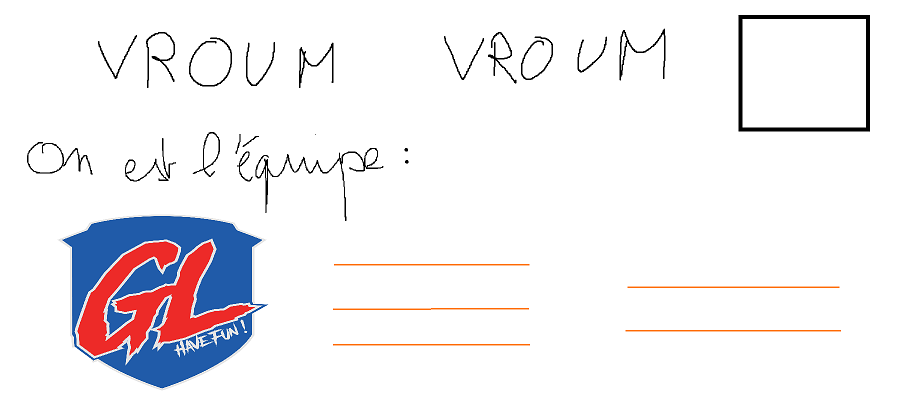 VROUM VROUM
On est l'équipe :
GL
HAVE FUN !